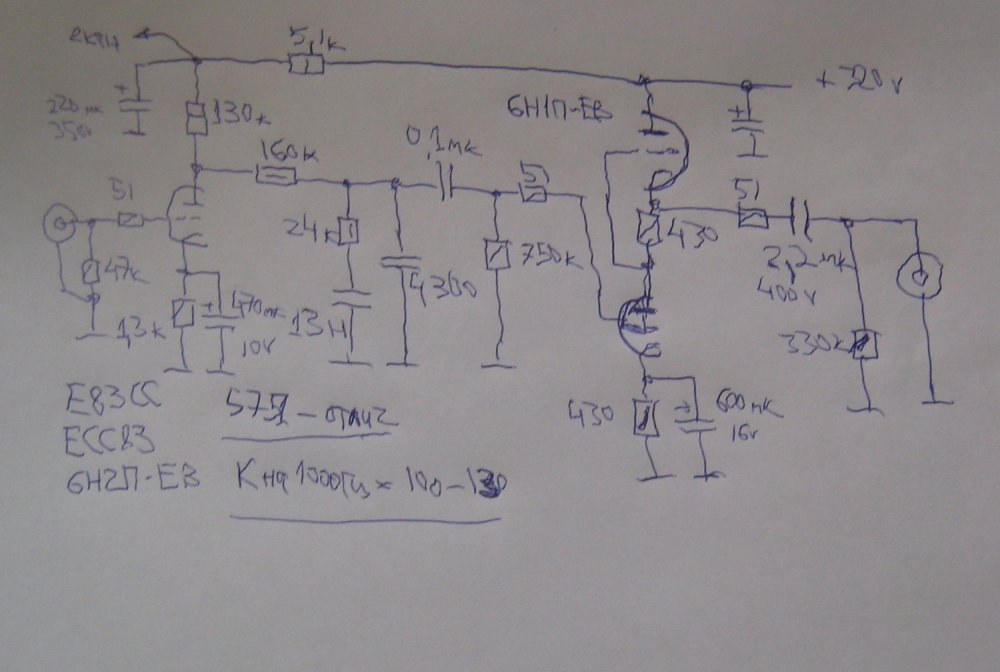 5,1к
+ 220v
220мк
350v
130к
6Н1П-ЕВ
160к
0,1мк
51
51
51
24к
430
47к
750к
4300
2,2мк
400v
1,3к
470мк
10v
13Н
330к
430
600мк
16v
E83CC
ECC83
6Н2П-ЕВ
К на 1000Гц = 100-130